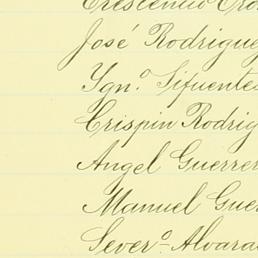 Crescencio Cro
José Rodrigue
Ygn.o Sifuentes
Crispin Rodrig
Angel Guerrer
Manuel Gue
Sever.o Alvara